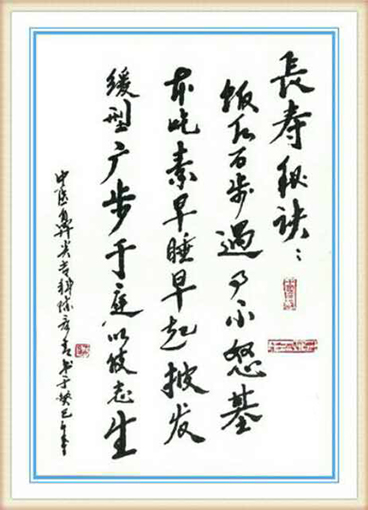 長寿秘诀：
饭后百步遇事不怒基
本吃素早睡早起披发
缓型广步于庭以使志生
中医鼻炎专科陈书于癸巳年春